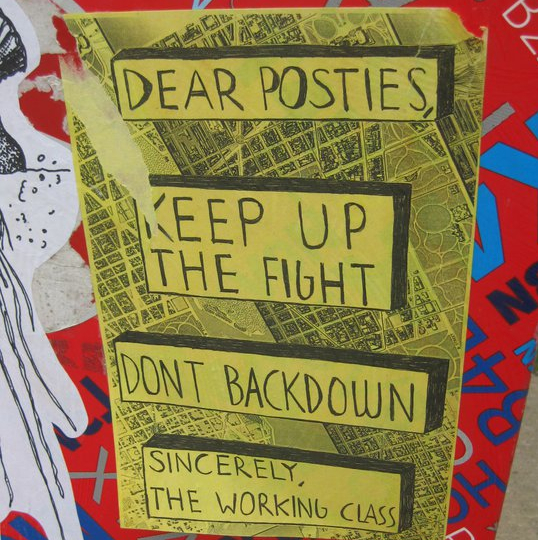 DEAR POSTIES,
KEEP UP
THE FIGHT
DONT BACKDOWN
SINCERELY,
THE WORKING CLASS